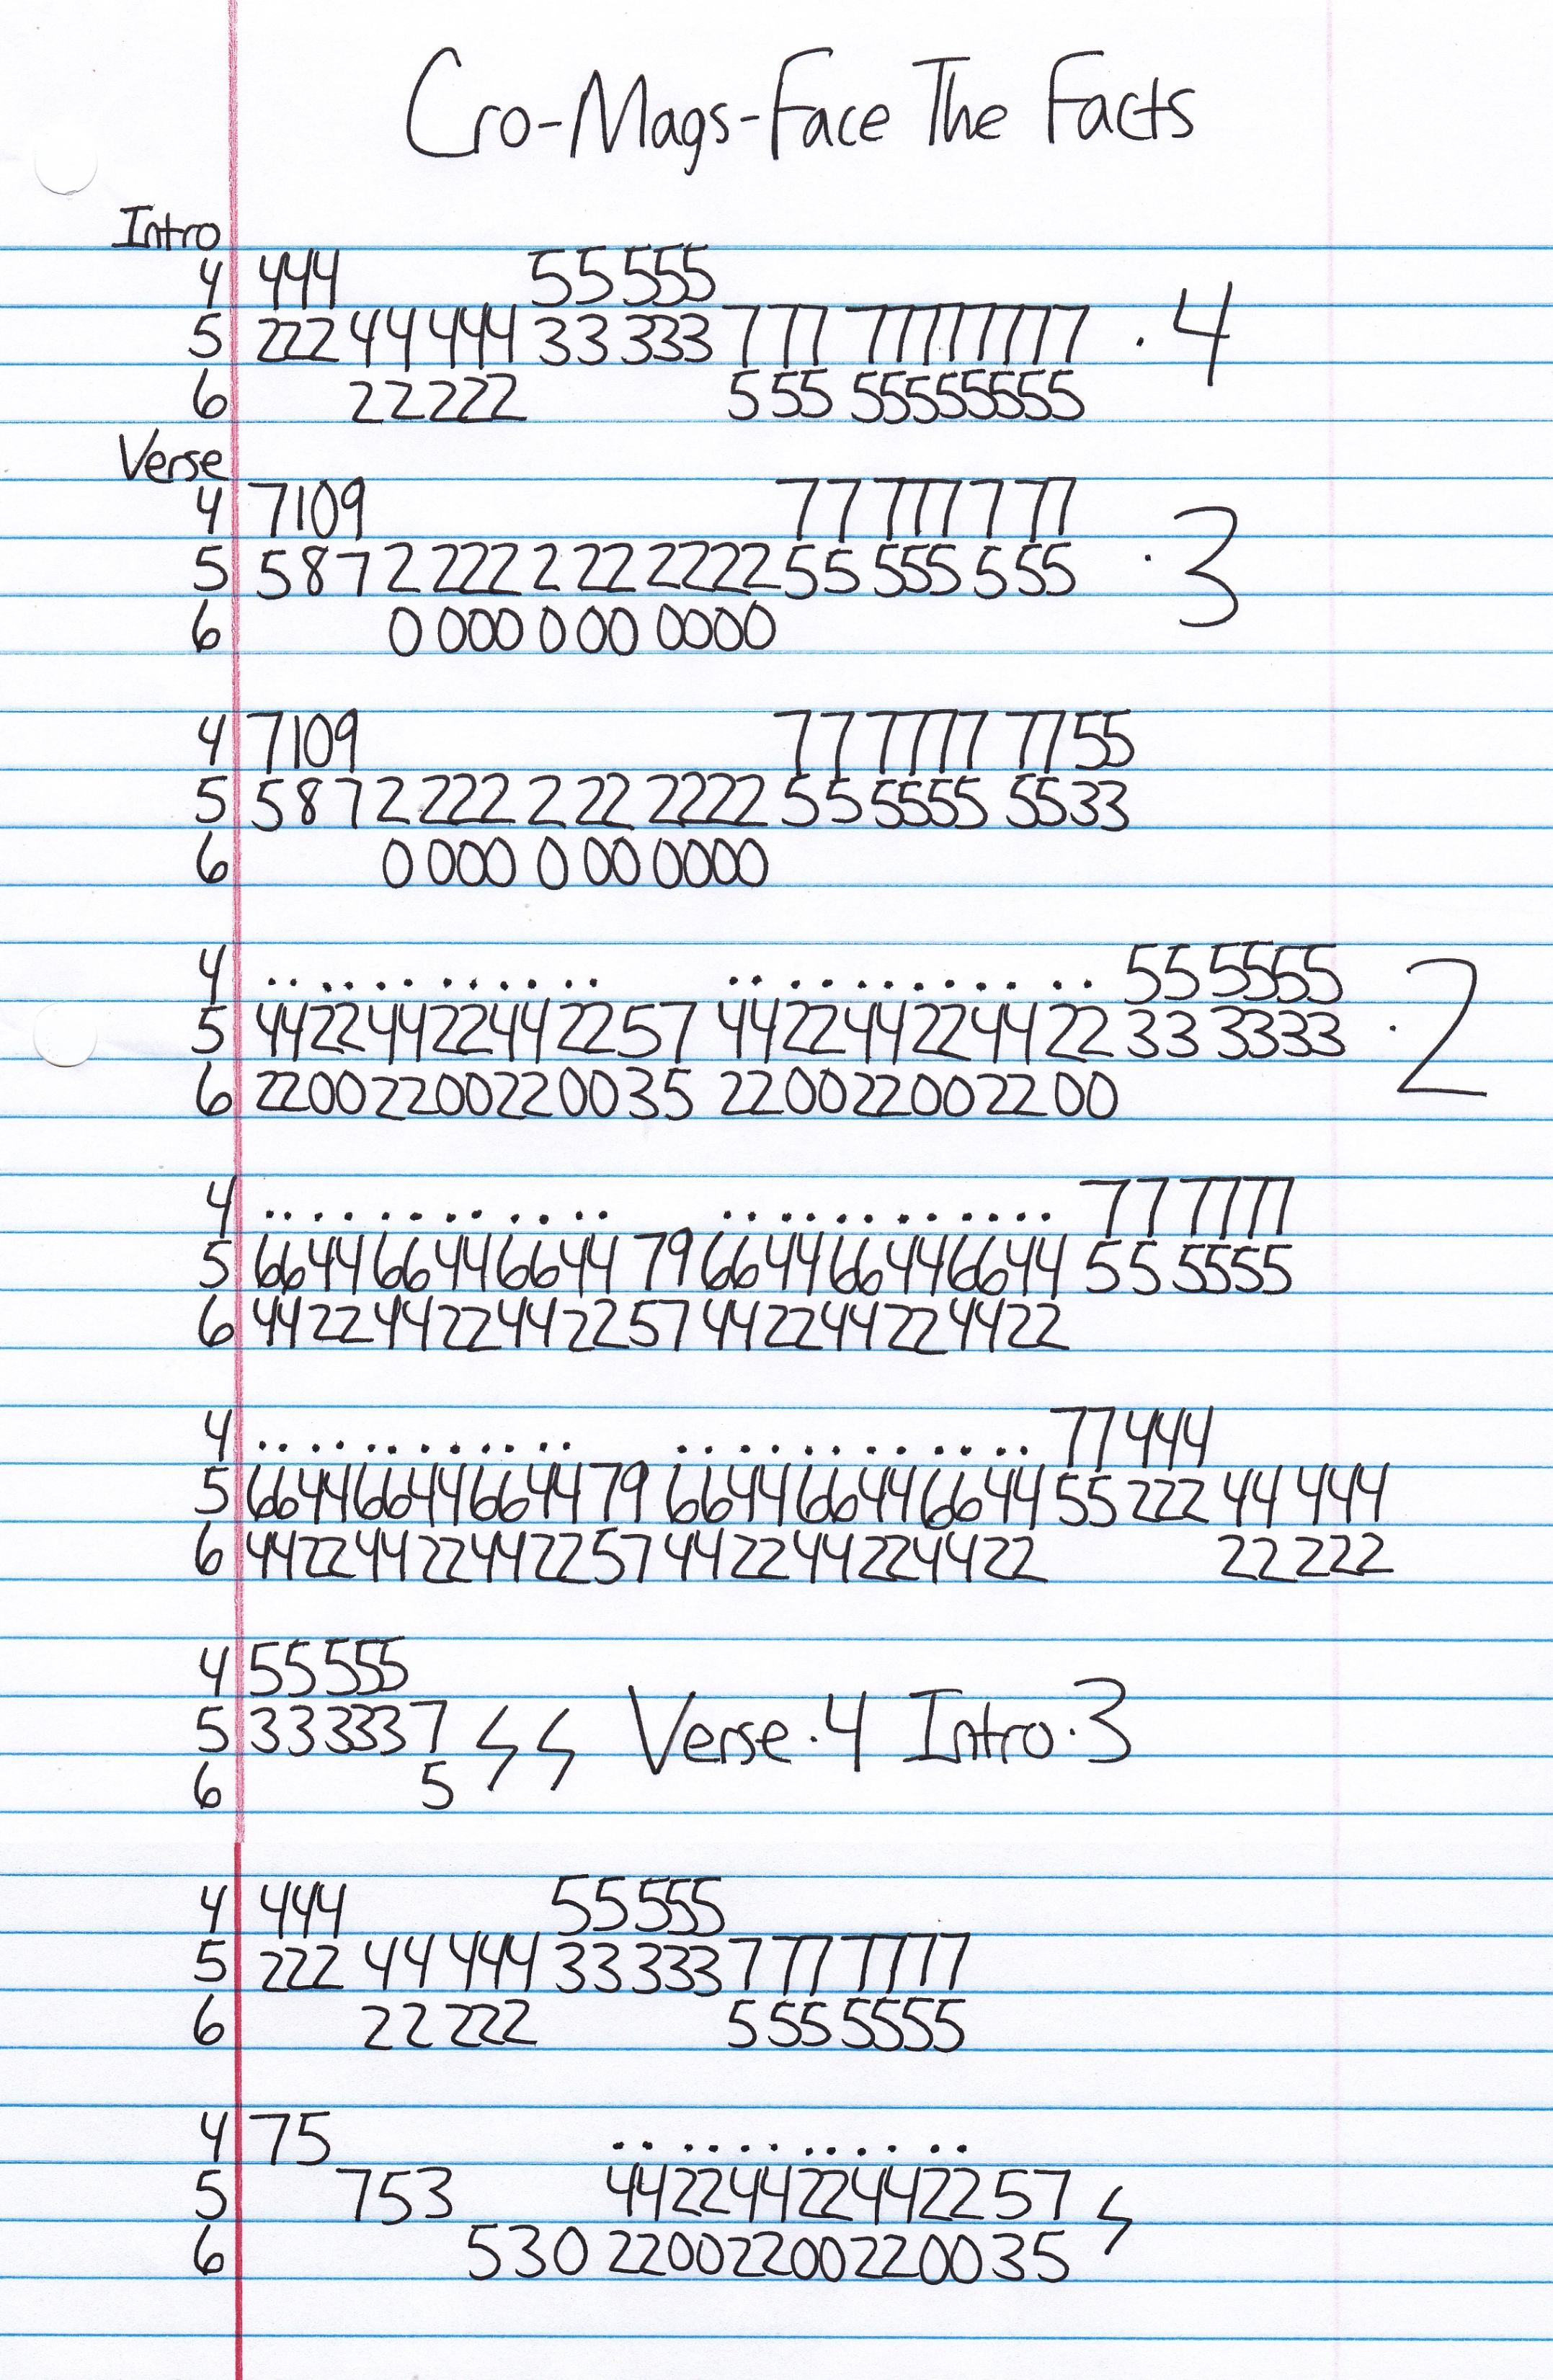 Cro-Mags-Face The Facts
Intro
4 444 55 555
5 222 44 444 33 333 7 77 77777777 .4
6 22 222 5 55 55555555
Verse
4 7109 77 777 7 77
5 587 2 222 2 22 2222 55 555 5 55 .3
6 0 000 0 00 0000
4 7109 77 7777 7755
5 587 2 222 2 22 2222 55 5555 5533
6 0 000 0 00 0000
4 ............ ............ 55 5555
5 44224422442257 442244224422 33 3333 .2
6 22002200220035 220022002200
4 ............ ............ 77 7777
5 664466446644 79 664466446644 55 5555
6 44224422442257 442244224422
4 ............ ............ 77 444
5 66446644664479 664466446644 55 222 44 444
6 44224422442257 442244224422 22 222
4 55555
5 333337 Verse.4 Intro.3
6 5
4 444 55 555
5 222 44 444 33 333 7 77 7777
6 22 222 5 55 5555
4 75 ............
5 753 44224422442257
6 530 22002200220035